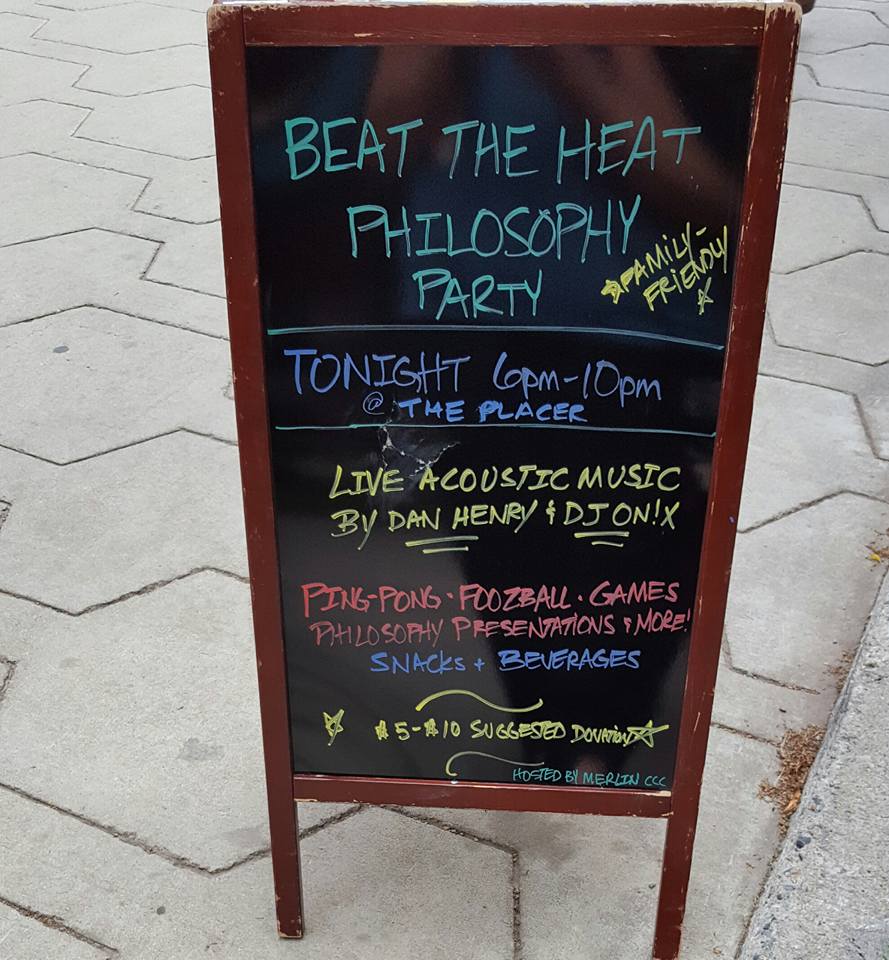 BEAT THE HEAT
PHILOSOPHY
PARTY
FAMILY-
FRIENDLY
TONIGHT 6pm-10pm
@ THE PLACER
LIVE ACOUSTIC MUSIC
BY DAN HENRY & DJ ON!X
PING-PONG · FOOZBALL · GAMES
PHILOSOPHY PRESENTATIONS & MORE!
SNACKS + BEVERAGES
$5-$10 SUGGESTED DONATION
HOSTED BY MERLIN CCC